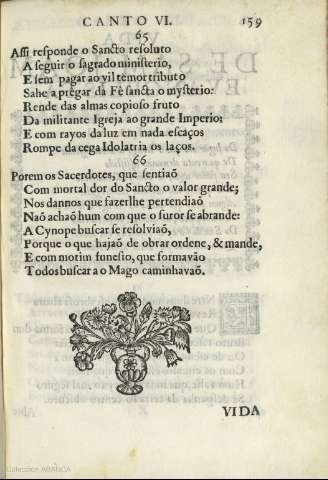 CANTO VI. 159
65
Assi responde o Sancto resoluto
A seguir o sagrado ministerio,
E sem pagar ao vil temor tributo
Sahe a prègar da Fè sancta o mysterio:
Rende das almas copioso fruto
Da militante Igreja ao grande Imperio:
E com rayos da luz em nada escaços
Rompe da cega Idolatria os laços.
66
Porem os Sacerdotes, que sentiaõ
Com mortal dor do Sancto o valor grande;
Nos dannos que fazerlhe pertendiaõ
Naõ achaõ hum com que o furor se abrande:
A Cynope buscar se resolviaõ,
Porque o que hajaõ de obrar ordene, & mande,
E com motim funesto, que formavaõ
Todos buscar a o Mago caminhavaõ.
VIDA
Colección ABANCA